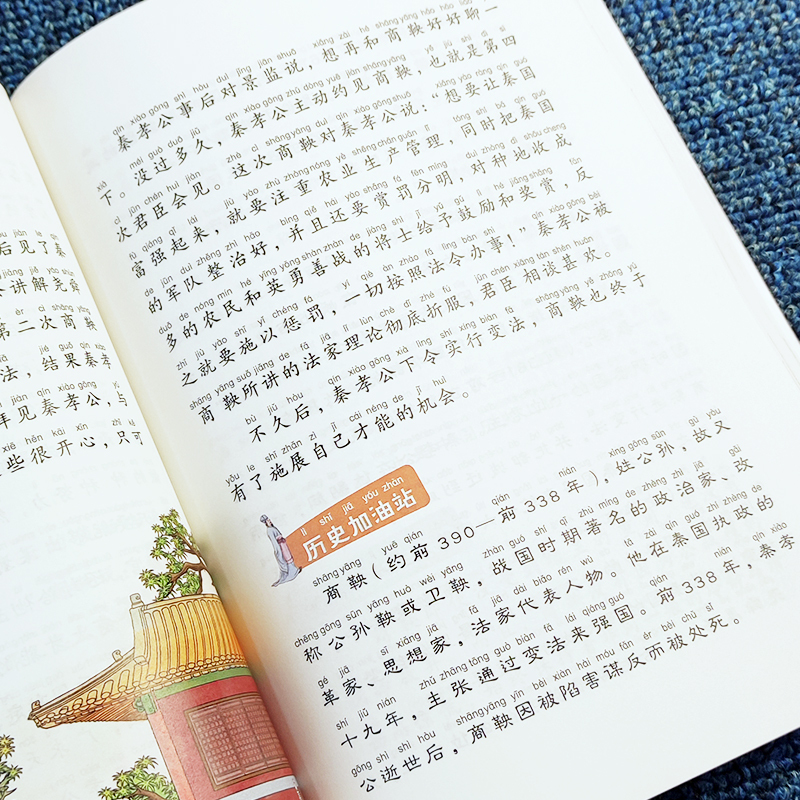 后见了秦
讲解尧舜
第二次商鞅
法，结果秦孝
拜见秦孝公，与
些很开心，只可
qín xiào gōng shì hòu duì jǐng jiān shuō xiǎng zài hé shāng yāng hǎo hǎo liáo yī
秦孝公事后对景监说，想再和商鞅好好聊一
xià méi guò duō jiǔ qín xiào gōng zhǔ dòng yuē jiàn shāng yāng yě jiù shì dì sì
下。没过多久，秦孝公主动约见商鞅，也就是第四
cì jūn chén huì jiàn zhè cì shāng yāng duì qín xiào gōng shuō xiǎng yào ràng qín guó
次君臣会见。这次商鞅对秦孝公说：“想要让秦国
fù qiáng qǐ lái jiù yào zhù zhòng nóng yè shēng chǎn guǎn lǐ tóng shí bǎ qín guó
富强起来，就要注重农业生产管理，同时把秦国
de jūn duì zhěng zhì hǎo bìng qiě hái yào shǎng fá fēn míng duì zhòng dì shōu cheng
的军队整治好，并且还要赏罚分明，对种地收成
duō de nóng mín hé yīng yǒng shàn zhàn de jiàng shì jǐ yǔ gǔ lì hé jiǎng shǎng fǎn
多的农民和英勇善战的将士给予鼓励和奖赏，反
zhī jiù yào shī yǐ chéng fá yī qiè àn zhào fǎ lìng bàn shì qín xiào gōng bèi
之就要施以惩罚，一切按照法令办事！”秦孝公被
shāng yāng suǒ jiǎng de fǎ jiā lǐ lùn chè dǐ zhé fú jūn chén xiāng tán shèn huān
商鞅所讲的法家理论彻底折服，君臣相谈甚欢。
bù jiǔ hòu qín xiào gōng xià lìng shí xíng biàn fǎ shāng yāng yě zhōng yú
不久后，秦孝公下令实行变法，商鞅也终于
yǒu le shī zhǎn zì jǐ cái néng de jī huì
有了施展自己才能的机会。
lì shǐ jiā yóu zhàn
历史加油站
shāng yāng yuē qián qián nián xìng gōng sūn gù yòu
商鞅（约前390—前338年），姓公孙，故又
chēng gōng sūn yāng huò wèi yāng zhàn guó shí qī zhù míng de zhèng zhì jiā gǎi
称公孙鞅或卫鞅，战国时期著名的政治家、改
gé jiā sī xiǎng jiā fǎ jiā dài biǎo rén wù tā zài qín guó zhí zhèng de
革家、思想家，法家代表人物。他在秦国执政的
shí jiǔ nián zhǔ zhāng tōng guò biàn fǎ lái qiáng guó qián nián qín xiào
十九年，主张通过变法来强国。前338年，秦孝
gōng shì shì hòu shāng yāng yīn bèi xiàn hài móu fǎn ér bèi chǔ sǐ
公逝世后，商鞅因被陷害谋反而被处死。